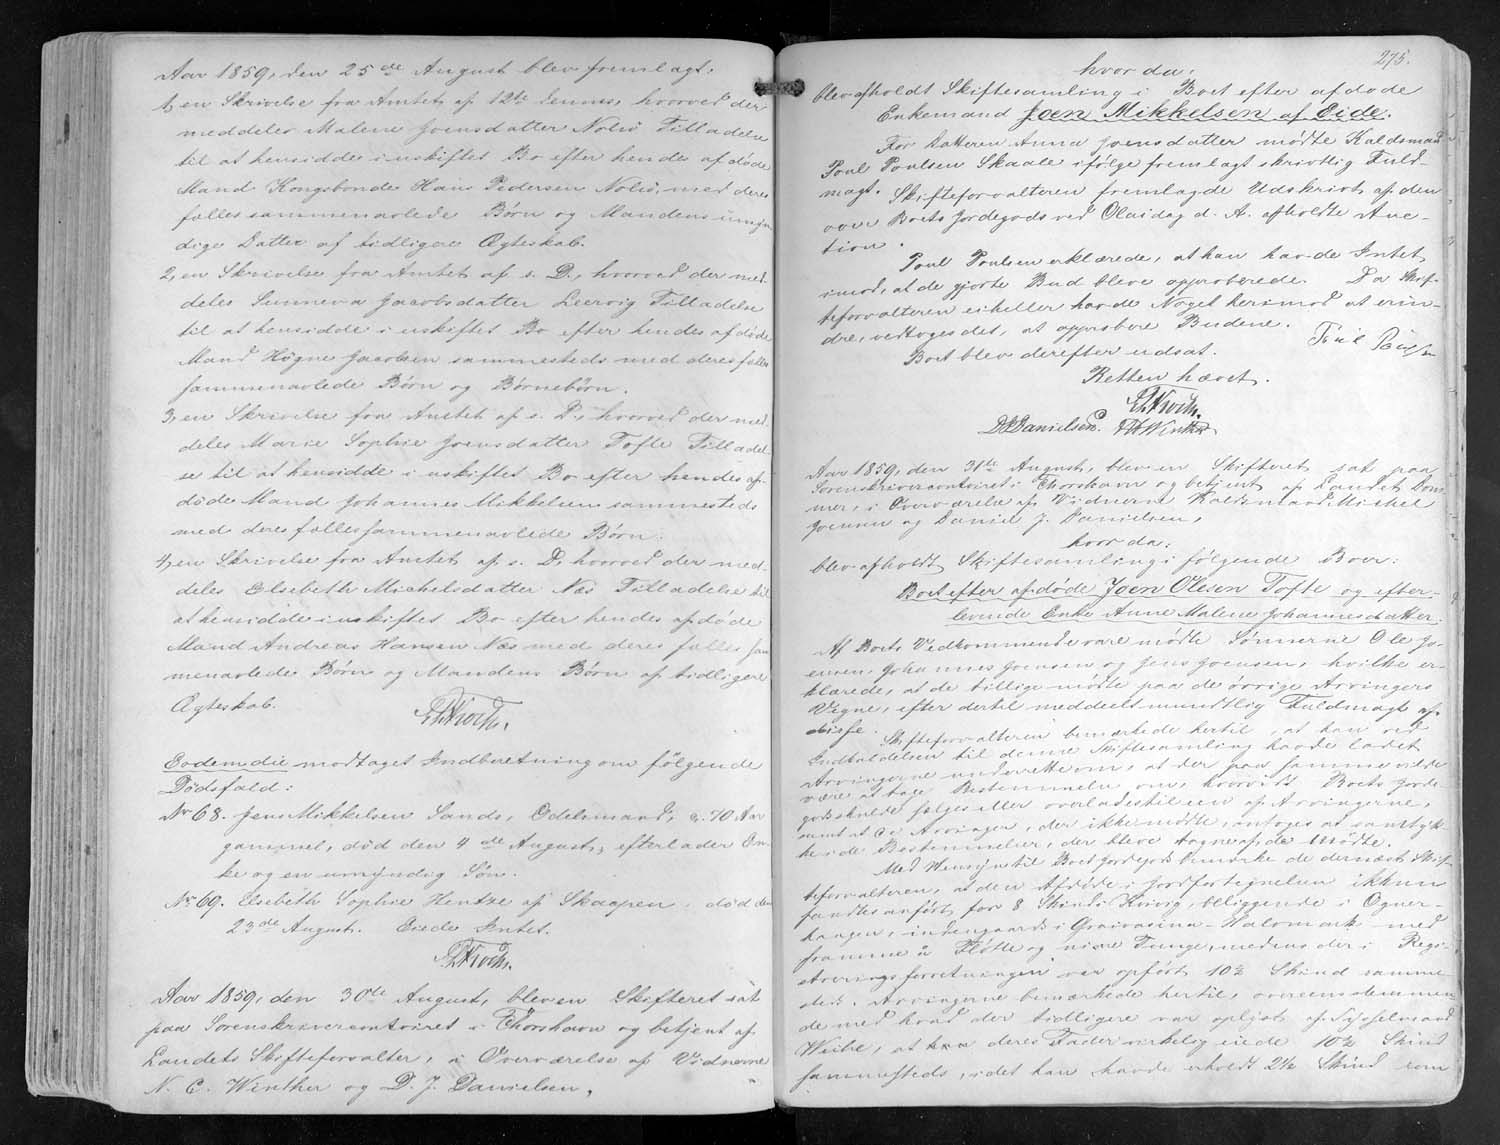 Aar 1859, den 25de August blev fremlagt:
1, en Skrivelse fra Amtet af 12te dennes, hvorved der
meddeles Malene Joensdatter Nolsö Tilladelse
til at hensidde i uskiftet Bo efter hendes afdöde
Mand Kongsbonde Hans Pedersen Nolsö, med deres
fælles sammenavlede Börn og Mandens umyn
dige Datter af tidligere Ægteskab.
2, en Skrivelse fra Amtet af s. D., hvorved der med-
deles Sunneva Jacobsdatter Leervig Tilladelse
til at hensidde i uskiftet Bo efter hendes afdöde
Mand Högne Jacobsen sammesteds med deres fælles
sammenavlede Börn og Börnebörn.
3, en Skrivelse fra Amtet af s. D., hvorved der med
deles Marie Sophie Joensdatter Tofte Tilladel-
se til at hensidde i uskiftet Bo efter hendes af-
döde Mand Johannes Mikkelsen sammesteds
med deres fælles sammenavlede Börn.
4, en Skrivelse fra Amtet af s. D, hvorved der med-
deles Elsebeth Michelsdatter Næs Tilladelse til
at hensidde i uskiftet Bo efter hendes afdöde
Mand Andreas Hansen Næs med deres fælles sam
menavlede Börn og Mandens Börn af tidligere
Ægteskab.
Eodem die modtaget Indberetning om fölgende
Dödsfald:
No 68. Jens Mikkelsen Sands, Odelsmand, c. 70 Aar
gammel, död den 4de August, efterlader En-
ke og en umyndig Sön.
No 69. Elsebeth Sophie Hentze af Skaapen, död den
23de August. Eiede Intet.
Aar 1859, den 30te August, blev en Skifteret sat
paa Sorenskrivercontoiret i Thorshavn og betjent af
Landets Skifteforvalter, i Overværelse af Vidnerne
N. C. Winther og D. J. Danielsen,
275.
hvor da:
blev afholdt Skiftesamling i Boet efter afdöde
Enkemand Joen Mikkelsen af Eide.
For Datteren Anna Joensdatter mödte Kaldsmand
Poul Poulsen Skaale ifölge fremlagt skrivtlig Fuld-
magt. Skifteforvalteren fremlagde Udskrivt af den
over Boets Jordegods ved Olaidag d. A. afholdte Auc-
tion.
Poul Poulsen erklærede, at han havde Intet
imod, at de gjorte Bud bleve approberede. Da Skif-
teforvalteren ei heller havde Noget herimod at erin-
dre, vedtoges det, at approbere Budene.
Boet blev derefter udsat.
Retten hævet.
D J Danielsen. N C Winther
Aar 1859, den 31te August, blev en Skifteret sat paa
Sorenskrivercontoiret i Thorshavn og betjent af Landets Dom-
mer, i Overværelse af Vidnerne Kaldsmand Michel
Joensen og Daniel J. Danielsen,
hvor da:
blev afholdt Skiftesamling i fölgende Boer:
Boet efter afdöde Joen Olesen Tofte og efter-
levende Enke Anne Malene Johannesdatter.
Af Boets Vedkommende vare mödte Sönnerne Ole Jo-
ensen, Johannes Joensen og Jens Joensen, hvilke er-
klærede, at de tillige mödte paa de övrige Arvingers
Vegne, efter dertil meddeelt mundtlig Fuldmagt af
disse. Skifteforvalteren bemærkede hertil, at han ved
Indkaldelsen til denne Skiftesamling havde ladet
Arvingerne underrette om, at der paa samme vilde
være at tage Bestemmelse om, hvorvidt Boets Jorde-
gods skulde sælges eller overlades til een af Arvingerne,
samt at de Arvinger, der ikke mödte, antoges at samtyk-
ke i de Bestemmelser, der bleve tagne af de Mödte.
Med Hensyn til Boets Jordegods bemærkede dernæst Skif-
teforvalteren, at den Afdöde i Jordfortegnelsen ikkun
fandtes anfört for 8 Skind i Kvivig, beliggende i
indengaards i med
framme á og
var opfört 10½ Skind samme-
steds. Arvingerne bemærkede hertil, overeensstemmen
de med hvad der tidligere var oplyst af Sysselmand
Weihe, at deres Fader virkelig eiede 10½ Skind
sammesteds, idet han havde erholdt 2½ Skind som